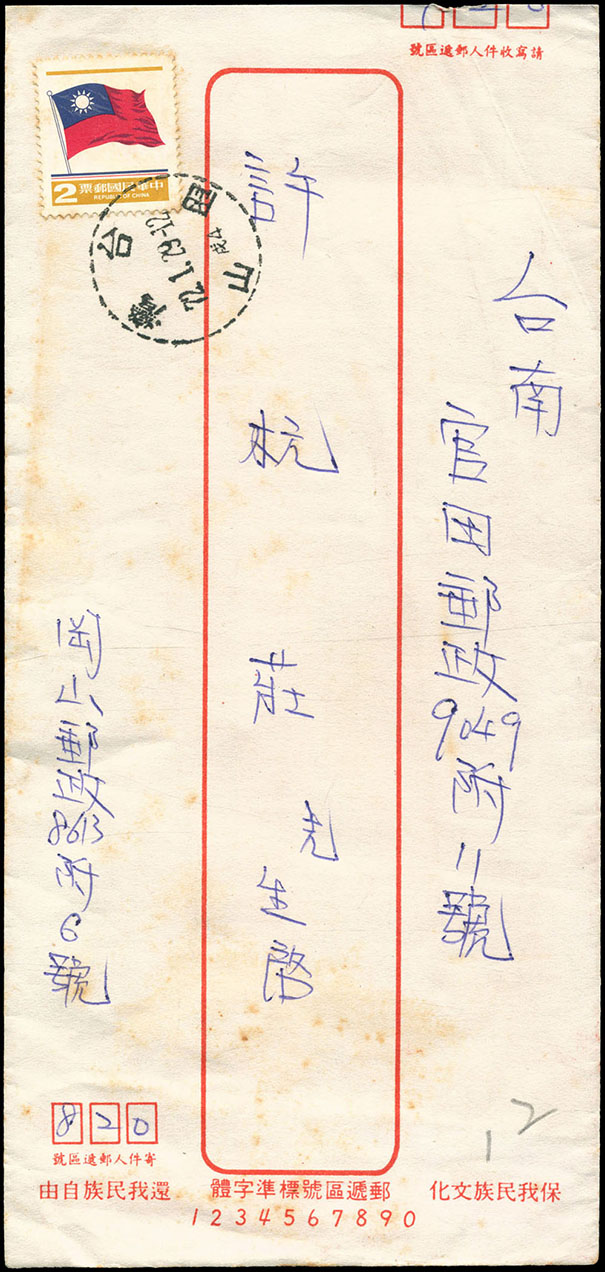 請寫收件人郵遞區號
中華民國郵票
2
REPUBLIC OF CHINA
台灣
72.1.29-12
台南
官田郵政9049附11號
許杭莊先生啓
岡山郵政8613附6號
820
寄件人郵遞區號
12
保我民族文化
郵遞區號標準字體
還我民族自由
1234567890